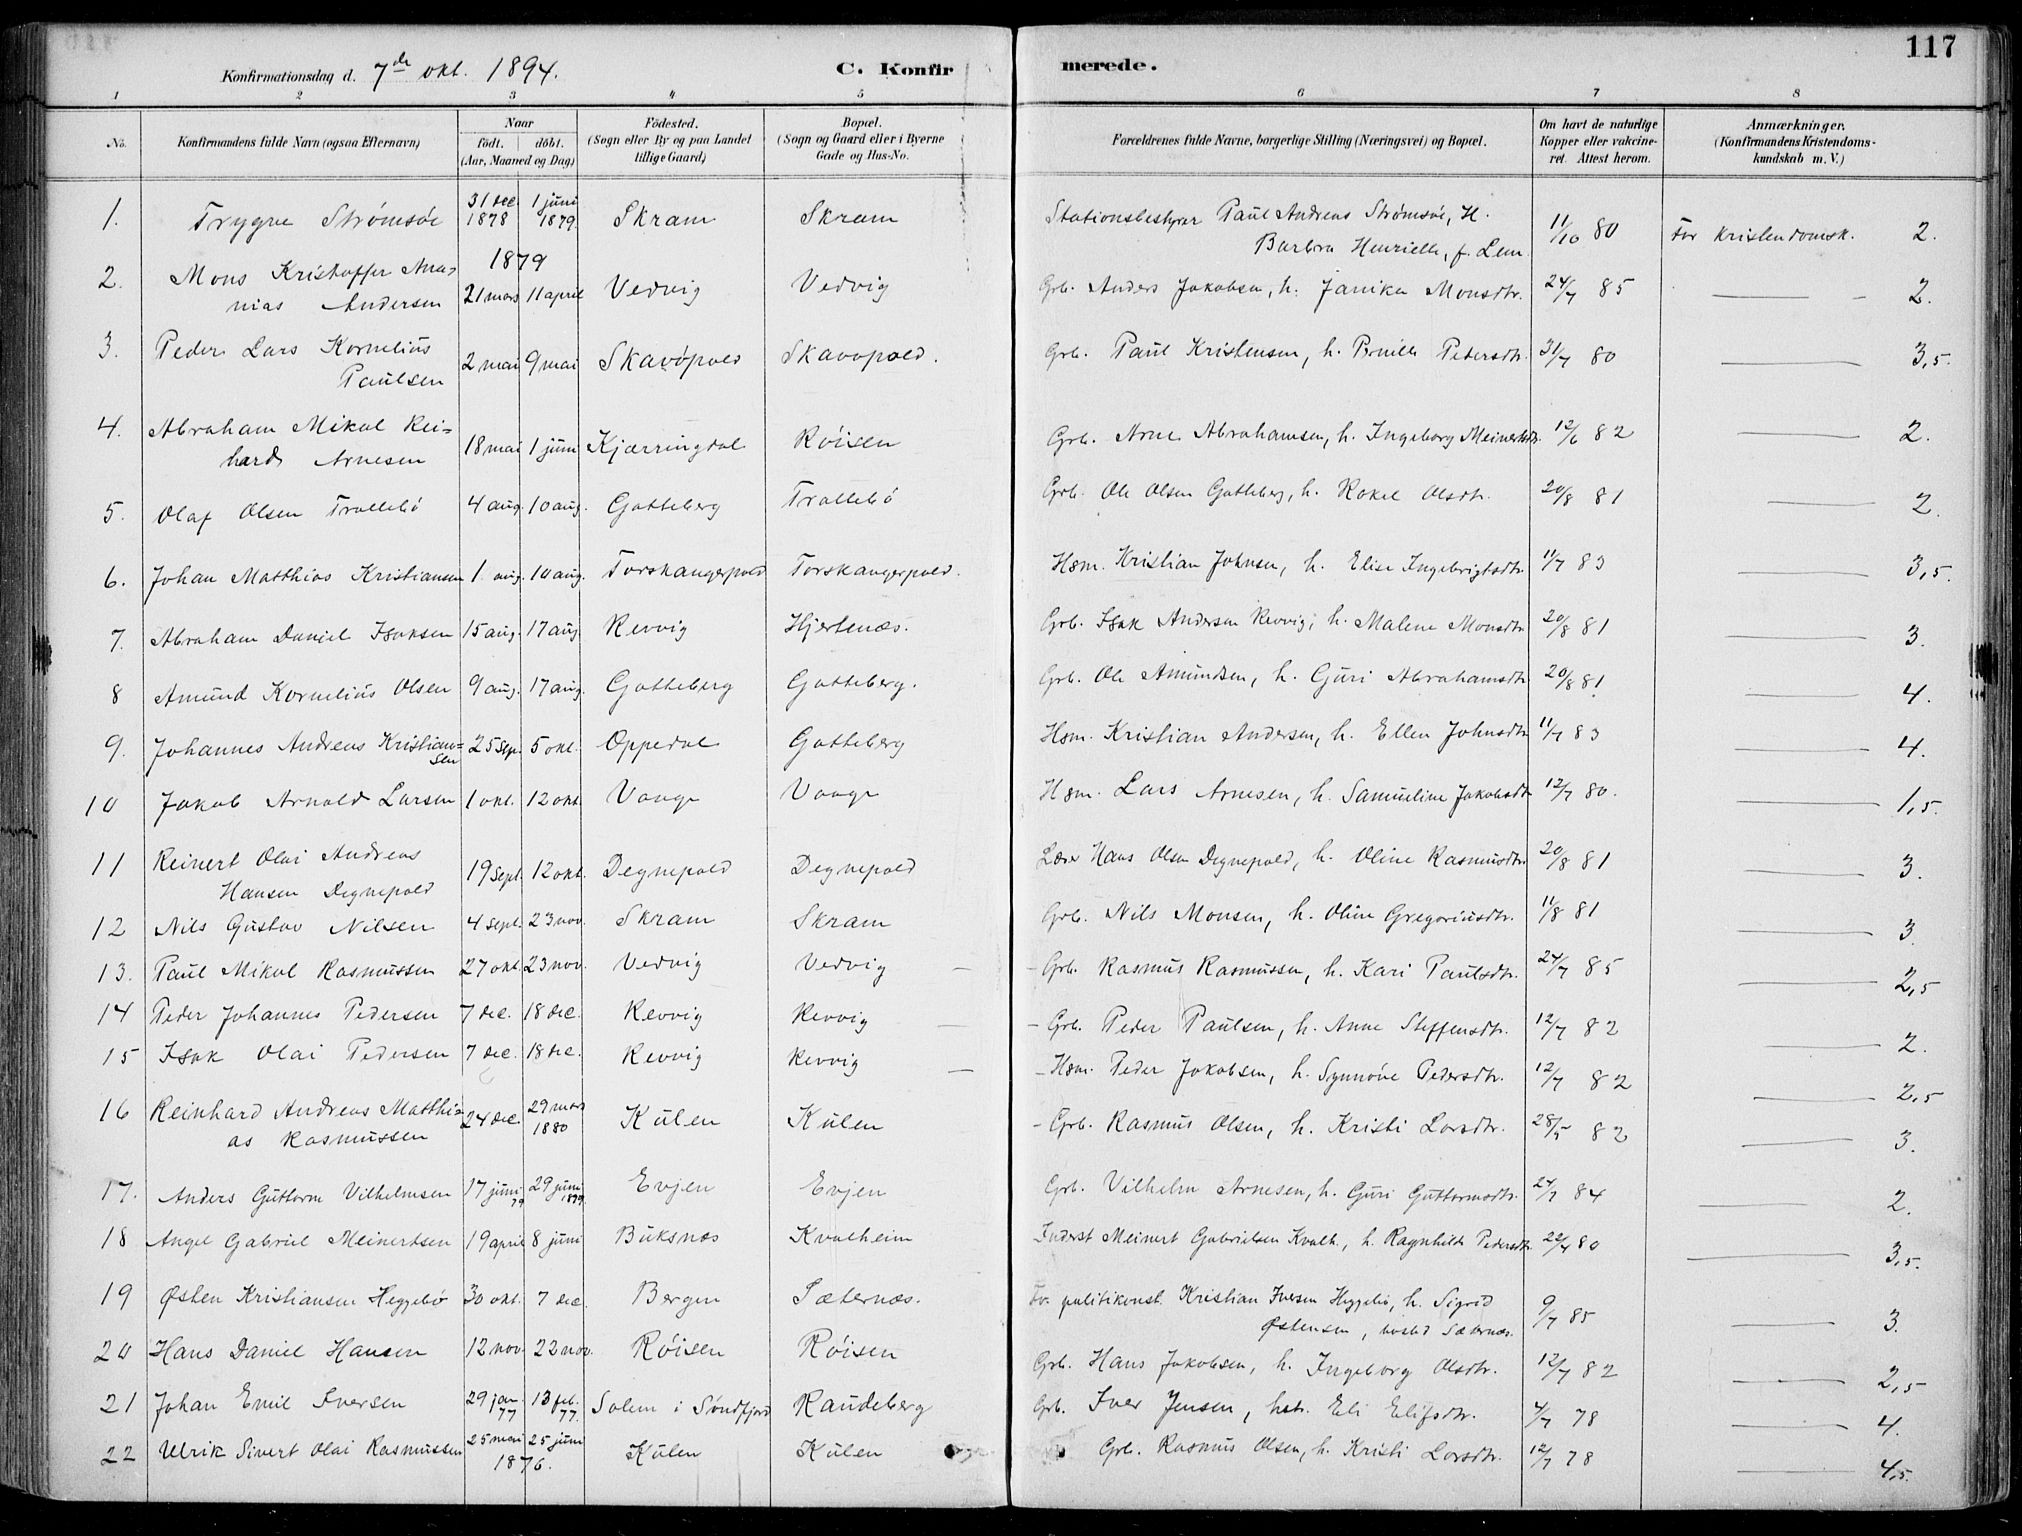 117
Konfirmationsdag d. 7de okt. 1894. C. Konfirmerede.
1 2 3 4 5 6 7 8
No. Konfirmandens fulde Navn (ogsaa Efternavn) Naar födt. döbt. (Aar, Maaned og Dag) Födested. (Sogn eller By og paa Landet tillige Gaard) Bopæl. (Sogn og Gaard eller i Byerne Gade og Hus-No. Forældrenes fulde Navne, borgerlige Stilling (Næringsvei) og Bopæl. Om havt de naturlige Kopper eller vakcineret. Attest herom. Anmærkninger. (Konfirmandens Kristendomskundskab m. V.)
1. Trygve Strømsøe 31 dec 1878 1 juni 1879. Skram Skram Stationsbestyrer Paul Andreas Strømsøe, H. Barbra Henriette, f. Lem 11/10 80 For kristendomsk. 2.
1879
2. Mons Kristoffer Ananias Andersen 21 mars 11 april Vedvig Vedvig Grb. Anders Jakobsen, h. Janika Monsdtr. 24/7 85 — 2.
3. Peder Lars Kornelius Paulsen 2 mai 9 mai Skavøpold Skavøpold. Grb. Paul Kristensen, h. Pernille Pedersdtr. 31/7 80 — 3,5.
4. Abraham Mikal Reihard Arnesen 18 mai 1 juni Kjærringdal Røisen Grb. Arne Abrahamsen, h. Ingeborg Meinertsdtr. 12/6 82 — 2.
5. Olaf Olsen Trollebø 4 aug. 10 aug. Gotteberg Trollebø Grb. Ole Olsen Gotteberg, h. Rakel Olsdtr. 20/8 81 — 2.
6. Johan Matthias Kristiansen 1 aug. 10 aug. Torskangerpold Torskangerpold. Hsm. Kristian Johnsen, h. Elise Ingebrigtsdtr 11/7 83 — 3,5.
7. Abraham Daniel Isaksen 15 aug. 17 aug. Revvig Hjertenæs. Grb. Isak Andersen Revvig, h. Malene Monsdtr. 20/8 81 — 3.
8 Amund Kornelius Olsen 9 aug. 17 aug. Gotteberg Gotteberg. Grb. Ole Amundsen, h. Guri Abrahamsdtr 20/8 81 — 4.
9. Johannes Andreas Kristiansen 25 sep. 5 okt. Oppedal Gotteberg Hsm. Kristian Andersen, h. Ellen Johnsdtr 11/7 83 — 4.
10 Jakob Arnold Larsen 1 okt. 12 okt. Vaage Vaage Hsm. Lars Arnesen, h. Samueline Jakobsdtr 12/7 80. — 1,5.
11 Reinert Olai Andreas Hansen Degnepold 19 sept. 12 okt. Degnepold Degnepold Lærer Hans Olsen Degnepold, h. Oline Rasmusdtr. 20/8 81 — 3.
12 Nils Gustav Nilsen 4 sept. 23 nov. Skram Skram Grb. Nils Monsen, h. Oline Gregoriusdtr. 11/8 81 — 3.
13. Paul Mikal Rasmussen 27 okt. 23 nov. Vedvig Vedvig — Grb. Rasmus Rasmussen, h. Kari Paulsdtr. 24/7 85 — 2,5
14 Peder Johannes Pedersen 7 dec. 18 dec. Revvig Revvig — Grb. Peder Paulsen, h. Anne Steffensdtr. 12/7 82 — 2.
15 Isak Olai Pedersen 7 dec. 18 dec. Revvig Revvig — Hsm. Peder Jakobsen, h. Synnøve Pedersdtr. 12/7 82 — 2,5
16 Reinhard Andreas Matthias Rasmussen 24 dec 29 mars 1880 Kulen Kulen — Grb. Rasmus Olsen, h. Kristi Larsdtr. 28/5 82 — 3.
17. Anders Guttorm Vilhelmsen 17 juni 79 29 juni 1879. Evjen Evjen Grb. Vilhelm Arnesen, h. Guri Guttormsdtr. 24/7 84 — 2.
18 Angel Gabriel Meinertsen 19 april 8 juni Buksnæs Kvalheim Inderst Meinert Gabrielsen Kvalh., h. Ragnhilde Pedersdtr. 22/4 80 — 3,5.
19 Østen Kristiansen Heggebø 30 okt. 7 dec. Bergen Sæternæs. Fv. politikonst. Kristian Iversen Heggebø, h. Sigrid Østensen, bosted Sæternæs. 9/7 85 — 3.
20 Hans Daniel Hansen 12 nov. 22 nov. Røisen Røisen Grb. Hans Jakobsen, h. Ingeborg Olsdtr. 12/7 82 — 2,5
21 Johan Emil Iversen 29 jan. 77 13 feb. 77. Solem i Søndfjord Raudeberg Grb. Iver Jensen, hstr. Eli Elifsdtr. 4/7 78 — 4.
22 Ulrik Sivert Olai Rasmussen 25 mai 25 juni 1876. Kulen Kulen Grb. Rasmus Olsen, h. Kristi Larsdtr. 12/7 78 — 4,5.